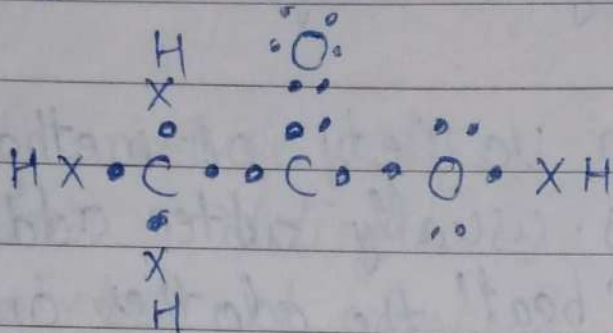 H O
X
H X C C O X H
X
H